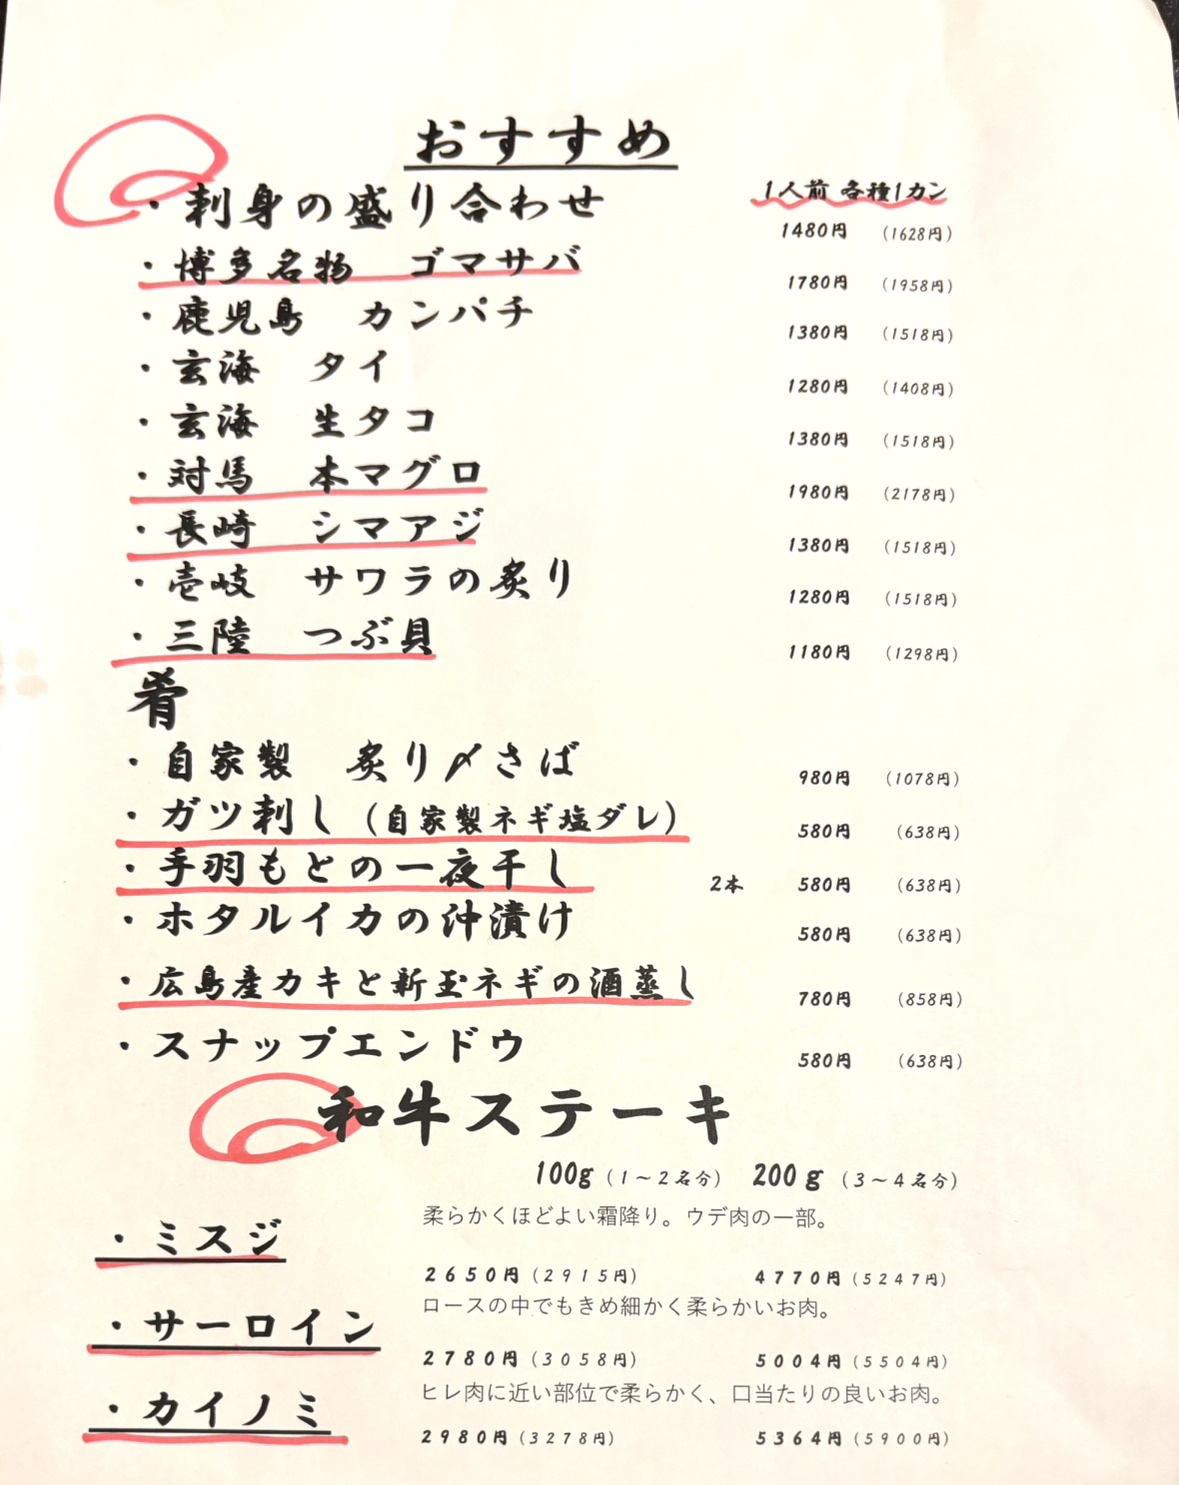 おすすめ
1人前 各種1カン
・刺身の盛り合わせ 1480円 (1628円)
・博多名物 ゴマサバ 1780円 (1958円)
・鹿児島 カンパチ 1380円 (1518円)
・玄海 タイ 1280円 (1408円)
・玄海 生タコ 1380円 (1518円)
・対馬 本マグロ 1980円 (2178円)
・長崎 シマアジ 1380円 (1518円)
・壱岐 サワラの炙り 1280円 (1518円)
・三陸 つぶ貝 1180円 (1298円)
肴
・自家製 炙り〆さば 980円 (1078円)
・ガツ刺し(自家製ネギ塩ダレ) 580円 (638円)
・手羽もとの一夜干し 2本 580円 (638円)
・ホタルイカの沖漬け 580円 (638円)
・広島産カキと新玉ネギの酒蒸し 780円 (858円)
・スナップエンドウ 580円 (638円)
和牛ステーキ
100g(1～2名分) 200g(3～4名分)
柔らかくほどよい霜降り。ウデ肉の一部。
・ミスジ
2650円(2915円) 4770円(5247円)
ロースの中でもきめ細かく柔らかいお肉。
・サーロイン
2780円(3058円) 5004円(5504円)
ヒレ肉に近い部位で柔らかく、口当たりの良いお肉。
・カイノミ
2980円(3278円) 5364円(5900円)